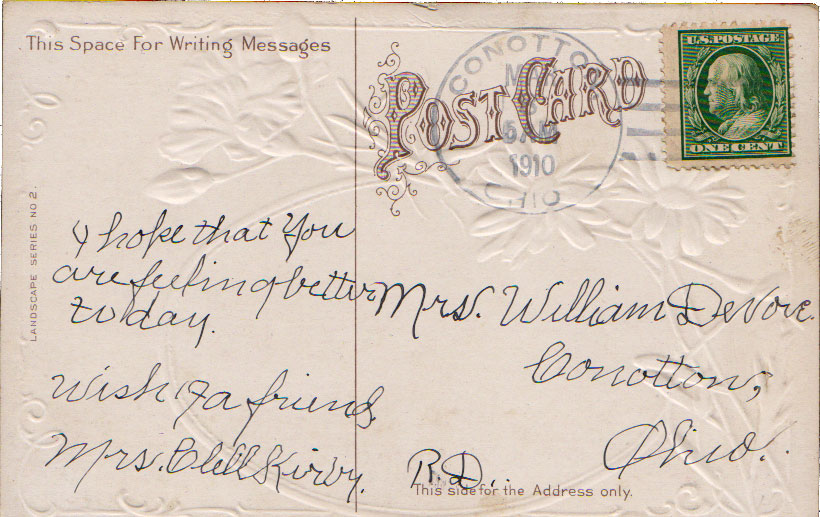 This Space For Writing Messages
POST CARD
CONOTTON
5 AM
1910
OHIO
U.S. POSTAGE
ONE CENT
LANDSCAPE SERIES NO 2.
I hope that You
are feeling better
to day.
Wish of a friend,
Mrs. Clell Kirby.
Mrs. William DeVore.
Conotton,
Ohio.
R.D.
This side for the Address only.